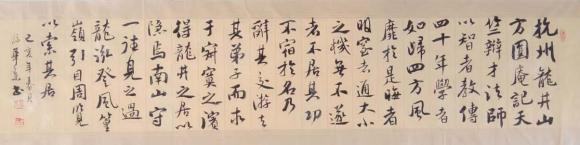 杭州龍井山
方圓庵記天
竺辯才法師
以智者教傳
四十年學者
如歸四方風
靡於是晦者
明窒者通大小
之機無不遂
者不居其功
不宿於名乃
辭其交游去
其弟子而求
于寂寞之濱
得龍井之居以
隱焉南山守
一往見之過
龍泓登風篁
嶺引目周覽
以索其居